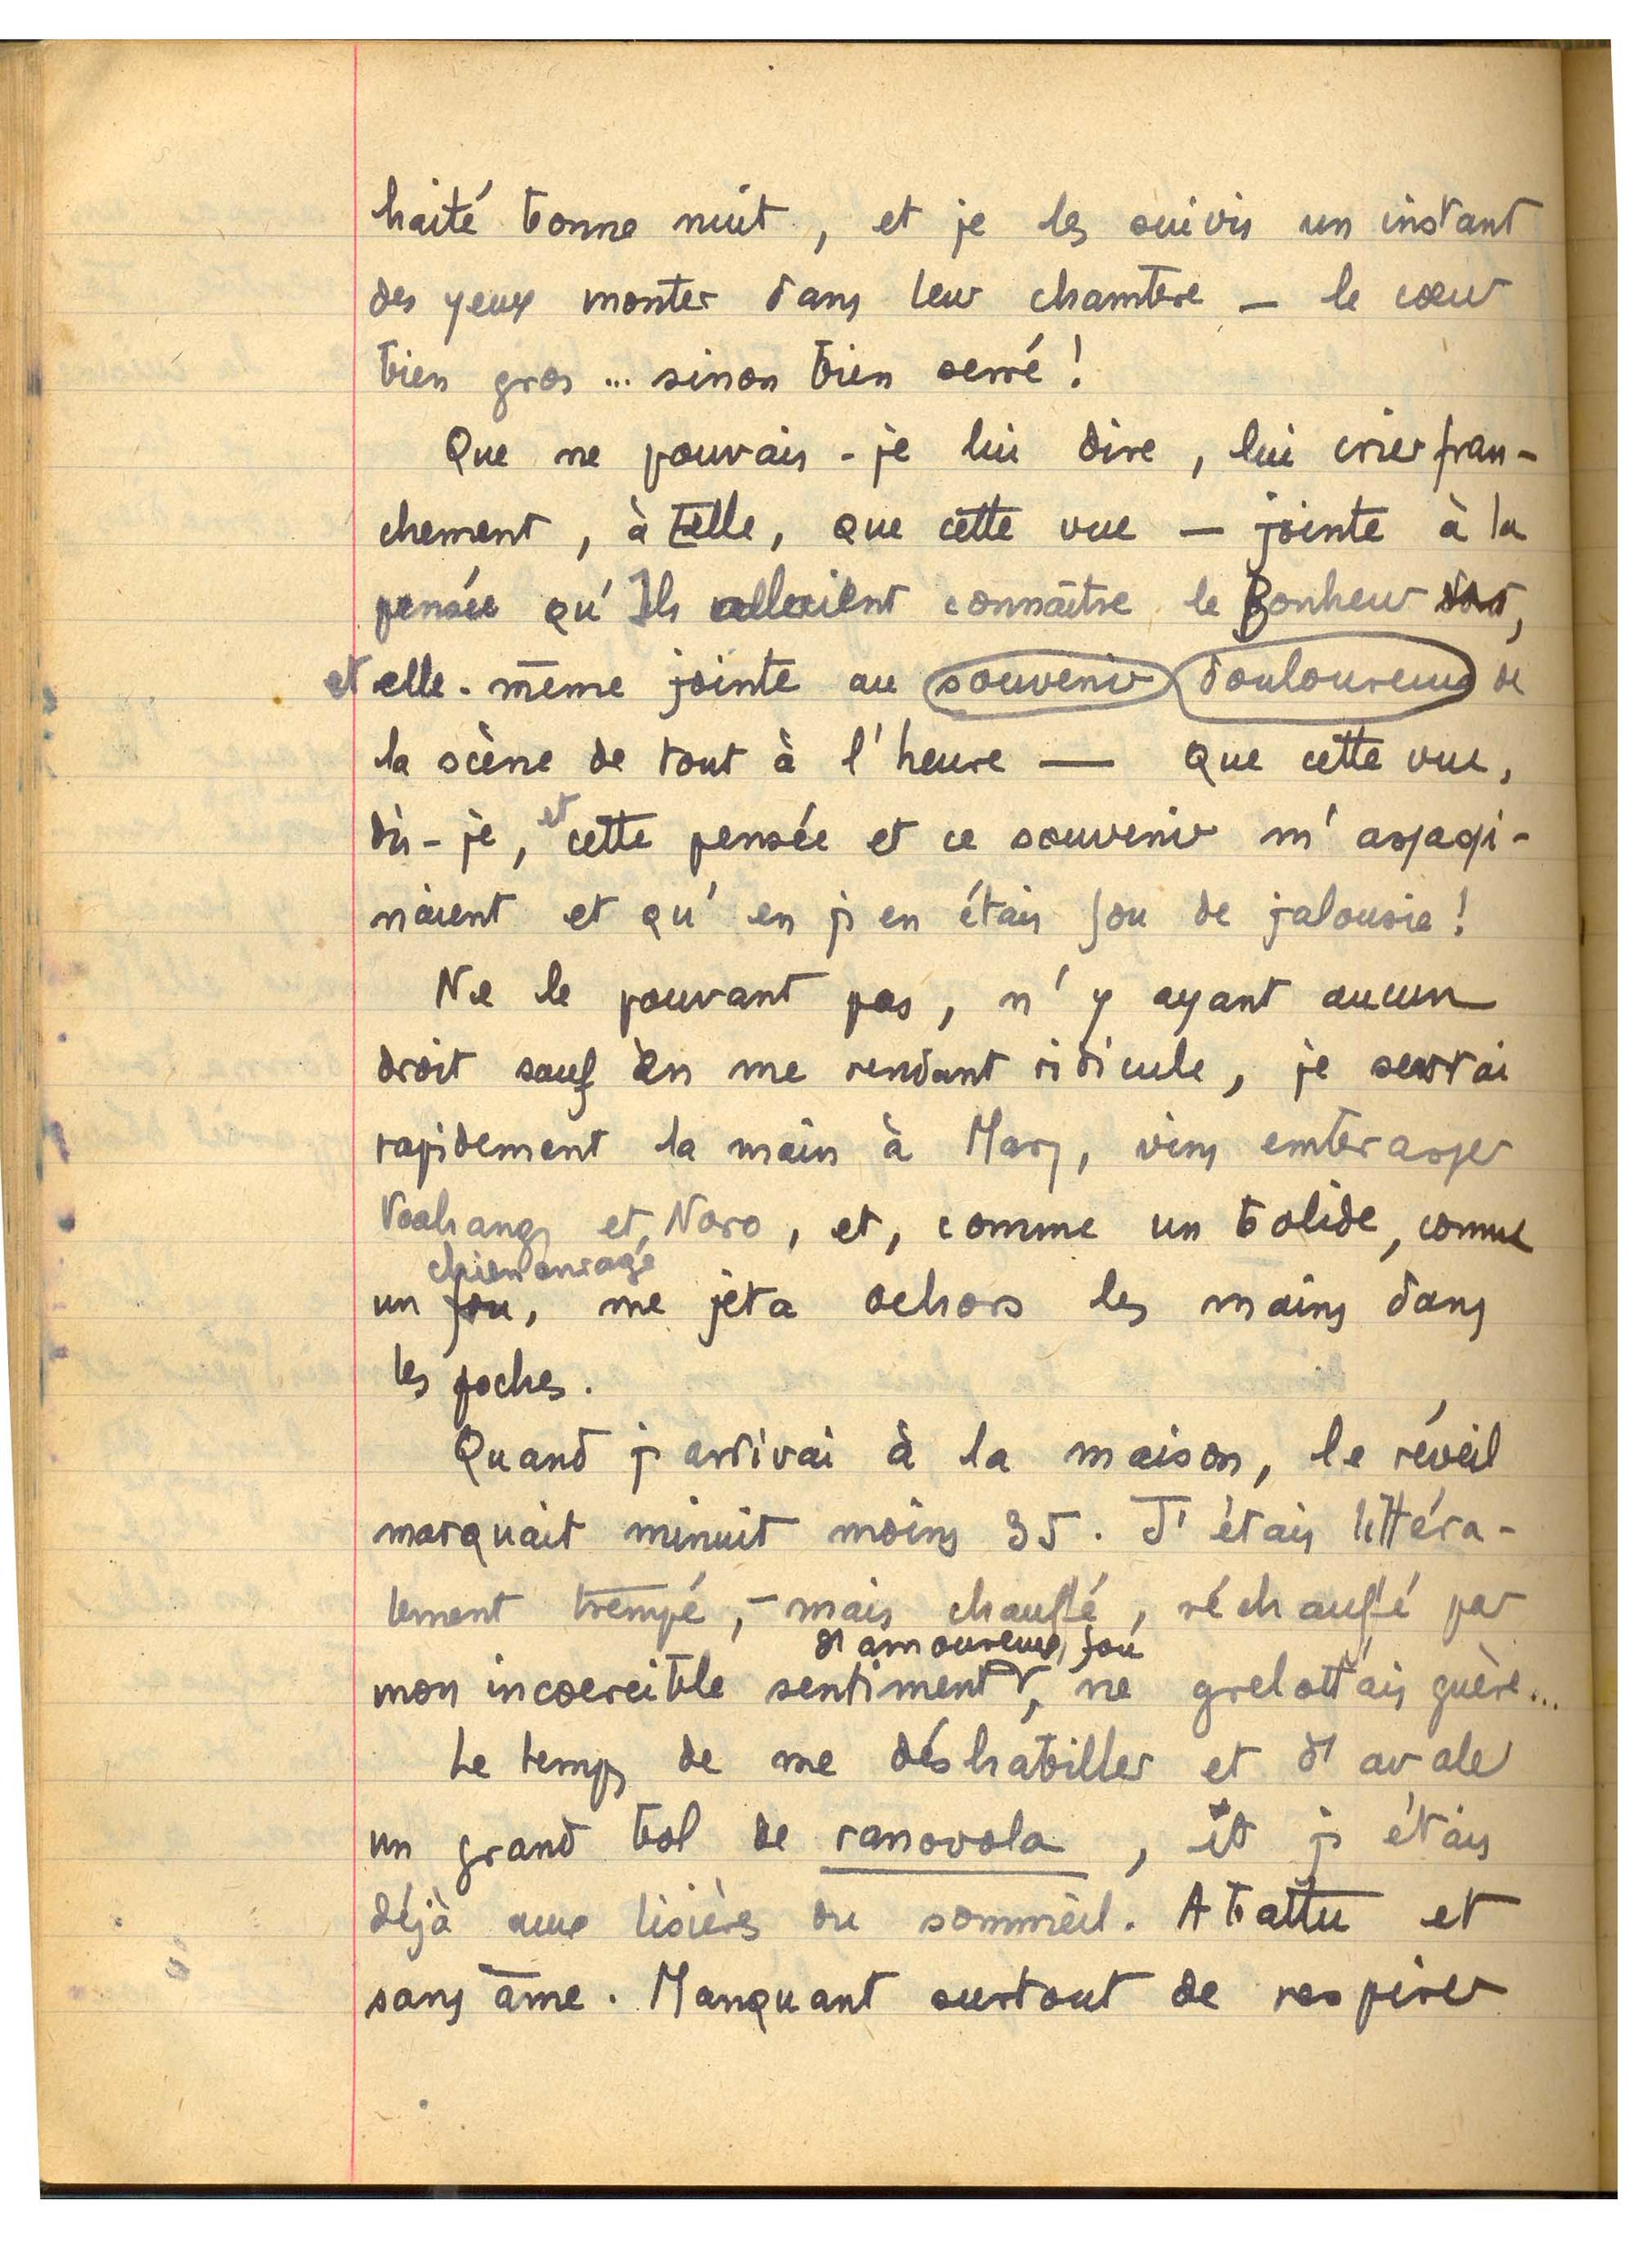 haité bonne nuit, et je les suivis un instant
des yeux monter dans leur chambre — le cœur
bien gros ... sinon bien serré !
Que ne pouvais-je lui dire, lui crier fran-
chement, à Elle, que cette vue — jointe à la
pensée qu'Ils allaient connaître le Bonheur,
et elle-même jointe au souvenir douloureux de
la scène de tout à l'heure — que cette vue,
dis-je, et cette pensée et ce souvenir m'assassi-
naient et qu'en j'en étais fou de jalousie !
Ne le pouvant pas, n'y ayant aucun
droit sauf en me rendant ridicule, je serrai
rapidement la main à Mary, vins embrasser
Voahangy et Noro, et, comme un bolide, comme
chien enragé
un fou, me jeta dehors les mains dans
les poches.
Quand j'arrivai à la maison, le réveil
marquait minuit moins 35. J'étais littéra-
lement trempé, — mais chauffé, réchauffé par
d'amoureux fou
mon incoercible sentiment, ne grelottais guère...
Le temps de me déshabiller et d'avaler
un grand bol de ranovola, et j'étais
déjà aux lisières du sommeil. Abattu et
sans âme. Manquant surtout de respirer